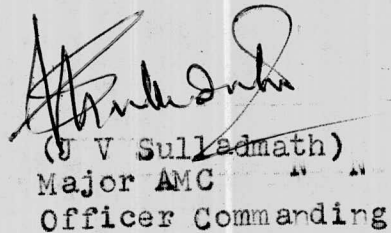 (J V Sulladmath)
Major AMC
Officer Commanding